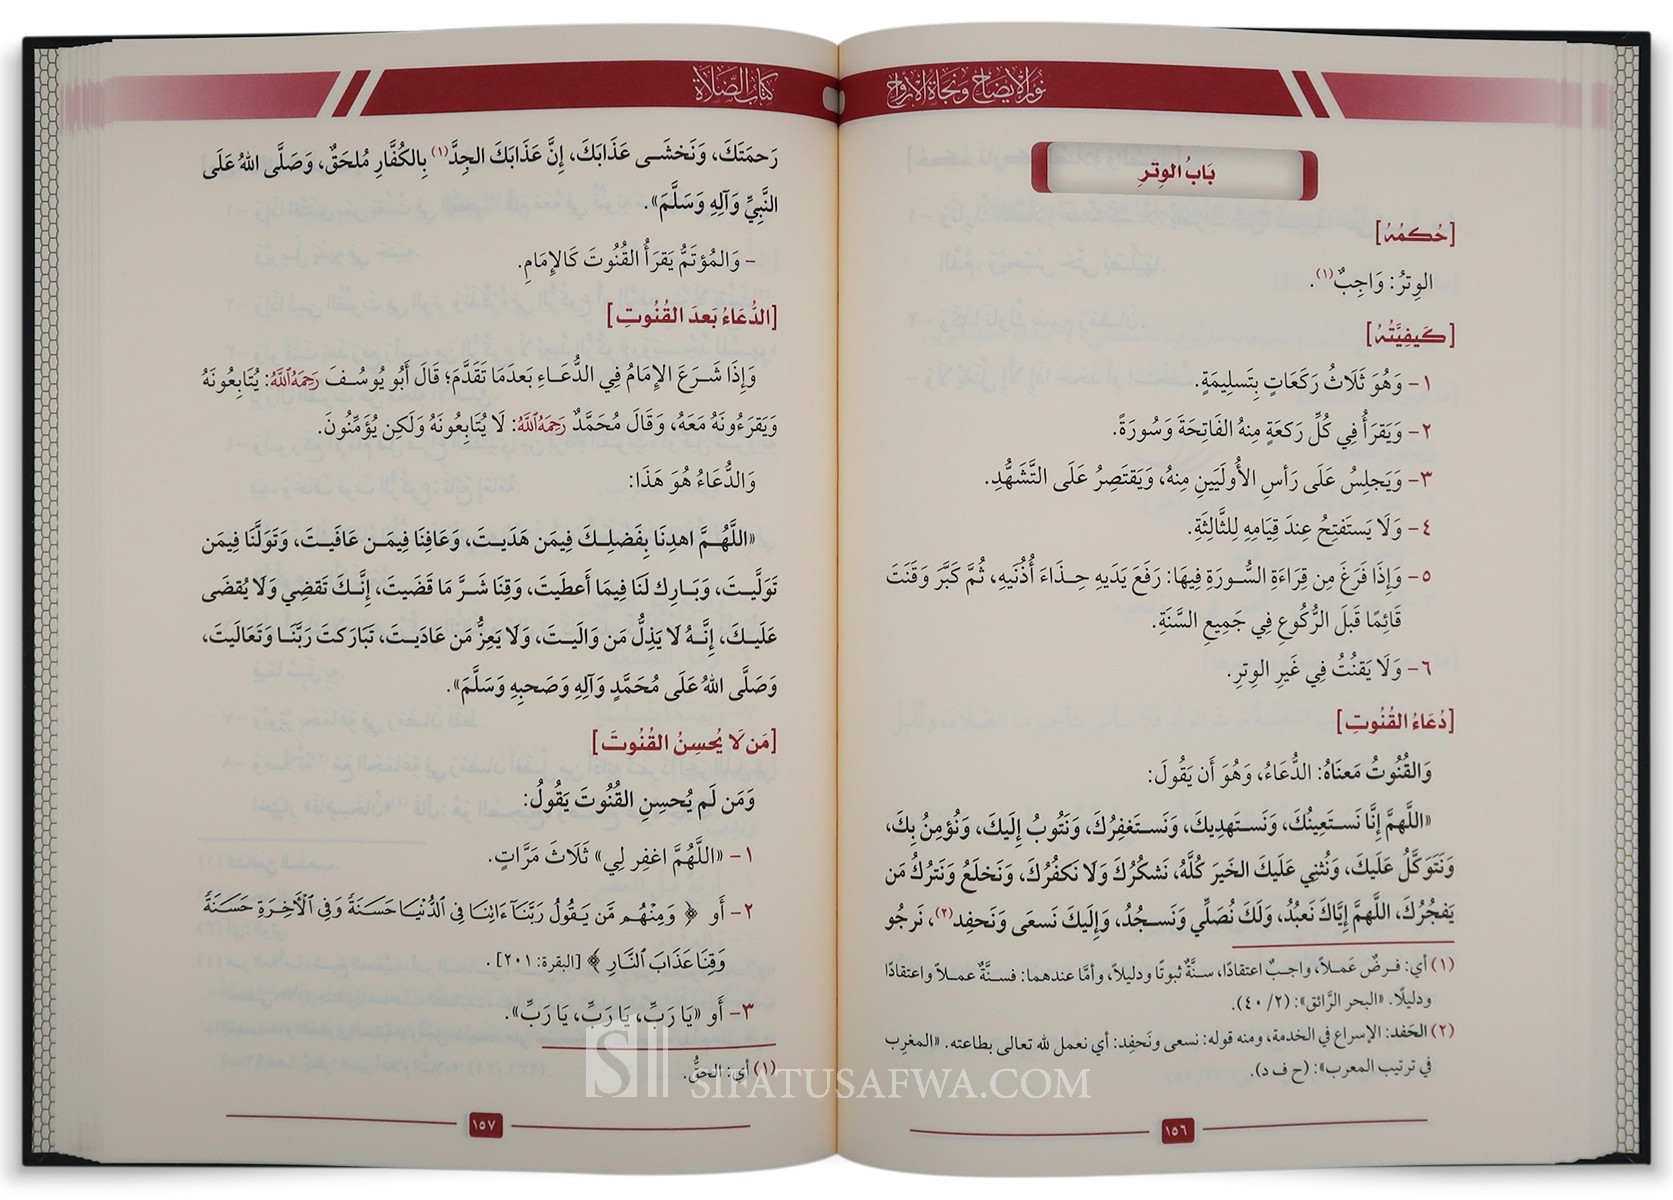 نور الإيضاح ونجاة الأرواح
بَابُ الوِترِ
[حُكمُهُ]
الوِترُ: وَاجِبٌ(١).
[كَيفِيَّتُهُ]
١- وَهُوَ ثَلَاثُ رَكَعَاتٍ بِتَسلِيمَةٍ.
٢- وَيَقرَأُ فِي كُلِّ رَكعَةٍ مِنهُ الفَاتِحَةَ وَسُورَةً.
٣- وَيَجلِسُ عَلَى رَأسِ الأُولَيَينِ مِنهُ، وَيَقتَصِرُ عَلَى التَّشَهُّدِ.
٤- وَلَا يَستَفتِحُ عِندَ قِيَامِهِ لِلثَّالِثَةِ.
٥- وَإِذَا فَرَغَ مِن قِرَاءَةِ السُّورَةِ فِيهَا: رَفَعَ يَدَيهِ حِذَاءَ أُذُنَيهِ، ثُمَّ كَبَّرَ وَقَنَتَ
قَائِمًا قَبلَ الرُّكُوعِ فِي جَمِيعِ السَّنَةِ.
٦- وَلَا يَقنُتُ فِي غَيرِ الوِترِ.
[دُعَاءُ القُنُوتِ]
وَالقُنُوتُ مَعنَاهُ: الدُّعَاءُ، وَهُوَ أَن يَقُولَ:
«اللَّهمَّ إِنَّا نَستَعِينُكَ، وَنَستَهدِيكَ، وَنَستَغفِرُكَ، وَنَتُوبُ إِلَيكَ، وَنُؤمِنُ بِكَ،
وَنَتَوَكَّلُ عَلَيكَ، وَنُثنِي عَلَيكَ الخَيرَ كُلَّهُ، نَشكُرُكَ وَلَا نَكفُرُكَ، وَنَخلَعُ وَنَترُكُ مَن
يَفجُرُكَ، اللهمَّ إِيَّاكَ نَعبُدُ، وَلَكَ نُصَلِّي وَنَسجُدُ، وَإِلَيكَ نَسعَى وَنَحفِد(٢)، نَرجُو
(١) أي: فرضٌ عَملاً، واجبٌ اعتقادًا، سنَّةٌ ثبوتًا ودليلاً، وأمَّا عندهما: فسنَّةٌ عملاً واعتقادًا
ودليلًا. «البحر الرَّائق»: (٢/ ٤٠).
(٢) الحَفد: الإسراع في الخدمة، ومنه قوله: نسعى ونَحفِد: أي نعمل لله تعالى بطاعته. «المغرِب
في ترتيب المعرب»: (ح ف د).
١٥٦
كتاب الصَّلاة
رَحمَتَكَ، وَنَخشَى عَذَابَكَ، إِنَّ عَذَابَكَ الجِدَّ(١) بِالكُفَّارِ مُلحَقٌ، وَصَلَّى اللهُ عَلَى
النَّبِيِّ وَآلِهِ وَسَلَّمَ».
- وَالمُؤتَمُّ يَقرَأُ القُنُوتَ كَالإِمَامِ.
[الدُّعَاءُ بَعدَ القُنُوتِ]
وَإِذَا شَرَعَ الإِمَامُ فِي الدُّعَاءِ بَعدَمَا تَقَدَّمَ؛ قَالَ أَبُو يُوسُفَ رَحِمَهُ اللَّهُ: يُتَابِعُونَهُ
وَيَقرَءُونَهُ مَعَهُ، وَقَالَ مُحَمَّدٌ رَحِمَهُ اللَّهُ: لَا يُتَابِعُونَهُ وَلَكِن يُؤَمِّنُونَ.
وَالدُّعَاءُ هُوَ هَذَا:
«اللَّهُمَّ اهدِنَا بِفَضلِكَ فِيمَن هَدَيتَ، وَعَافِنَا فِيمَن عَافَيتَ، وَتَوَلَّنَا فِيمَن
تَوَلَّيتَ، وَبَارِك لَنَا فِيمَا أَعطَيتَ، وَقِنَا شَرَّ مَا قَضَيتَ، إِنَّكَ تَقضِي وَلَا يُقضَى
عَلَيكَ، إِنَّهُ لَا يَذِلُّ مَن وَالَيتَ، وَلَا يَعِزُّ مَن عَادَيتَ، تَبَارَكتَ رَبَّنَا وَتَعَالَيتَ،
وَصَلَّى اللهُ عَلَى مُحَمَّدٍ وَآلِهِ وَصَحبِهِ وَسَلَّمَ».
[مَن لَا يُحسِنُ القُنُوتَ]
وَمَن لَم يُحسِنِ القُنُوتَ يَقُولُ:
١- «اللَّهُمَّ اغفِر لِي» ثَلَاثَ مَرَّاتٍ.
٢- أَو ﴿ وَمِنْهُم مَّن يَقُولُ رَبَّنَآ ءَاتِنَا فِى ٱلدُّنْيَا حَسَنَةً وَفِى ٱلْءَاخِرَةِ حَسَنَةً
وَقِنَا عَذَابَ ٱلنَّارِ ﴾ [البقرة: ٢٠١].
٣- أَو «يَا رَبِّ، يَا رَبِّ، يَا رَبِّ».
(١) أي: الحقُّ.
١٥٧
SIFATUSAFWA.COM